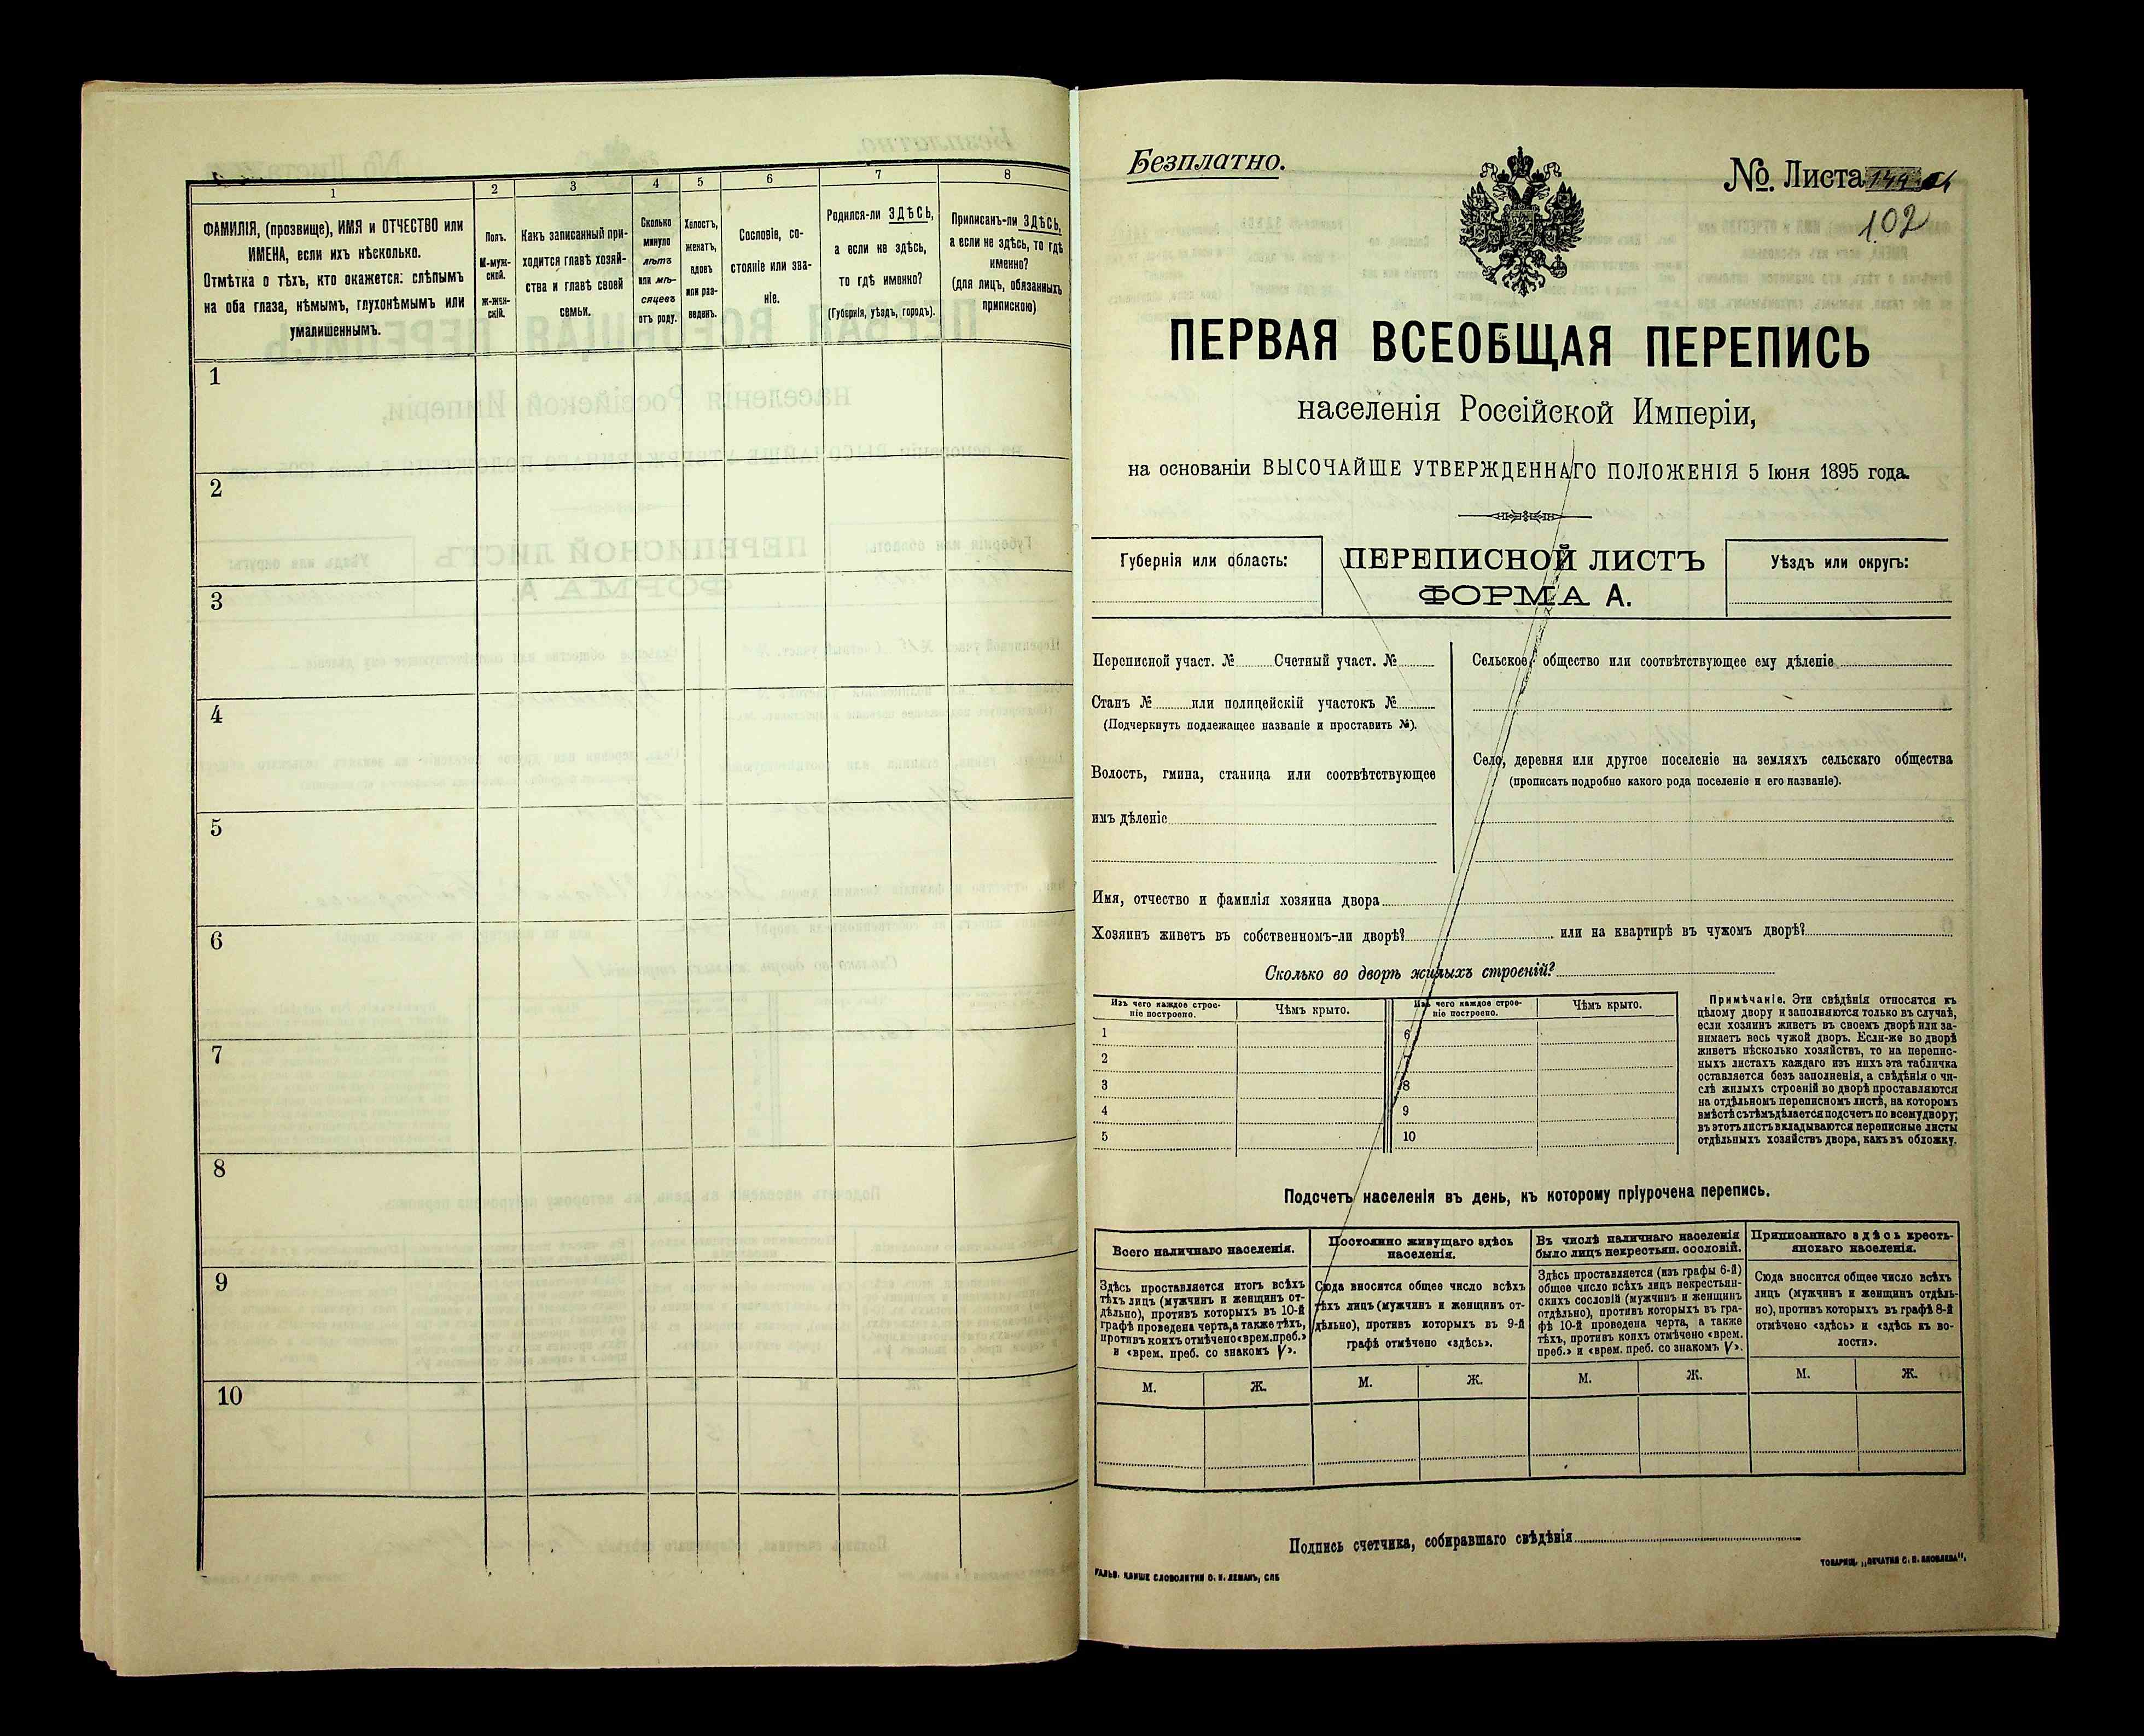 1
2
3
4
5
6
7
8
ФАМИЛІЯ, (прозвище), ИМЯ и ОТЧЕСТВО или
ИМЕНА, если ихъ нѣсколько.
Отмѣтка о тѣхъ, кто окажется: слѣпымъ
на оба глаза, нѣмымъ, глухонѣмымъ или
умалишеннымъ.
Полъ.
М-муж-
ской.
Ж-жен-
скій.
Какъ записанный при-
ходится главѣ хозяй-
ства и главѣ своей
семьи.
Сколько
минуло
лѣтъ
или мѣ-
сяцевъ
отъ роду.
Холостъ,
женатъ,
вдовъ
или раз-
веденъ.
Сословіе, со-
стояніе или зва-
ніе.
Родился-ли ЗДѢСЬ,
а если не здѣсь,
то гдѣ именно?
(Губернія, уѣздъ, городъ).
Приписанъ-ли ЗДѢСЬ,
а если не здѣсь, то гдѣ
именно?
(для лицъ, обязанныхъ
припискою)
1
2
3
4
5
6
7
8
9
10
Безплатно.
№ Листа
102
ПЕРВАЯ ВСЕОБЩАЯ ПЕРЕПИСЬ
населенія Россійской Имперіи,
на основаніи ВЫСОЧАЙШЕ УТВЕРЖДЕННАГО ПОЛОЖЕНІЯ 5 Іюня 1895 года.
Губернія или область:
ПЕРЕПИСНОЙ ЛИСТЪ
ФОРМА А.
Уѣздъ или округъ:
Переписной участ. № Счетный участ. №
Станъ № или полицейскій участокъ №
(Подчеркнуть подлежащее названіе и проставить №).
Волость, гмина, станица или соотвѣтствующее
имъ дѣленіе
Сельское общество или соотвѣтствующее ему дѣленіе
Село, деревня или другое поселеніе на земляхъ сельскаго общества
(прописать подробно какого рода поселеніе и его названіе).
Имя, отчество и фамилія хозяина двора
Хозяинъ живетъ въ собственномъ-ли дворѣ? или на квартирѣ въ чужомъ дворѣ?
Сколько во дворѣ жилыхъ строеній?
Изъ чего каждое строе-
ніе построено.
Чѣмъ крыто.
Изъ чего каждое строе-
ніе построено.
Чѣмъ крыто.
1
2
3
4
5
6
7
8
9
10
Примѣчаніе. Эти свѣдѣнія относятся къ
цѣлому двору и заполняются только въ случаѣ,
если хозяинъ живетъ въ своемъ дворѣ или за-
нимаетъ весь чужой дворъ. Если-же во дворѣ
живетъ нѣсколько хозяйствъ, то на перепис-
ныхъ листахъ каждаго изъ нихъ эта табличка
оставляется безъ заполненія, а свѣдѣнія о чи-
слѣ жилыхъ строеній во дворѣ проставляются
на отдѣльномъ переписномъ листѣ, на которомъ
вмѣстѣ съ тѣмъ дѣлается подсчетъ по всему двору;
въ этотъ листъ вкладываются переписные листы
отдѣльныхъ хозяйствъ двора, какъ въ обложку.
Подсчетъ населенія въ день, къ которому пріурочена перепись.
Всего наличнаго населенія.
Постоянно живущаго здѣсь
населенія.
Въ числѣ наличнаго населенія
было лицъ некрестьян. сословій.
Приписаннаго здѣсь кресть-
янскаго населенія.
Здѣсь проставляется итогъ всѣхъ
тѣхъ лицъ (мужчинъ и женщинъ от-
дѣльно), противъ которыхъ въ 10-й
графѣ проведена черта, а также тѣхъ,
противъ коихъ отмѣчено «врем. преб.»
и «врем. преб. со знакомъ V».
Сюда вносится общее число всѣхъ
тѣхъ лицъ (мужчинъ и женщинъ от-
дѣльно), противъ которыхъ въ 9-й
графѣ отмѣчено «здѣсь».
Здѣсь проставляется (изъ графы 6-й)
общее число всѣхъ лицъ некрестьян-
скихъ сословій (мужчинъ и женщинъ
отдѣльно), противъ которыхъ въ гра-
фѣ 10-й проведена черта, а также
тѣхъ, противъ коихъ отмѣчено «врем.
преб.» и «врем. преб. со знакомъ V».
Сюда вносится общее число всѣхъ
лицъ (мужчинъ и женщинъ отдѣль-
но), противъ которыхъ въ графѣ 8-й
отмѣчено «здѣсь» и «здѣсь къ во-
лости».
М.
Ж.
М.
Ж.
М.
Ж.
М.
Ж.
Подпись счетчика, собиравшаго свѣдѣнія
ГАЛЬВ. КЛИШЕ СЛОВОЛИТНИ О. И. ЛЕМАНЪ, СПБ
ТОВАРИЩ. „ПЕЧАТНЯ С. П. ЯКОВЛЕВА“.